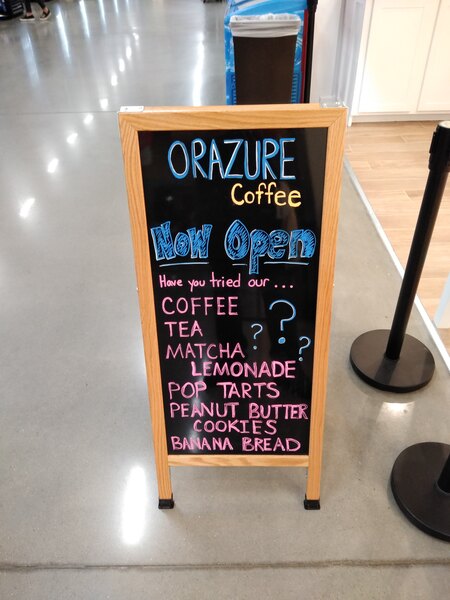 ORAZURE
Coffee
Now Open
Have you tried our ...
COFFEE
TEA
MATCHA
LEMONADE
POP TARTS
PEANUT BUTTER
COOKIES
BANANA BREAD
? ? ?